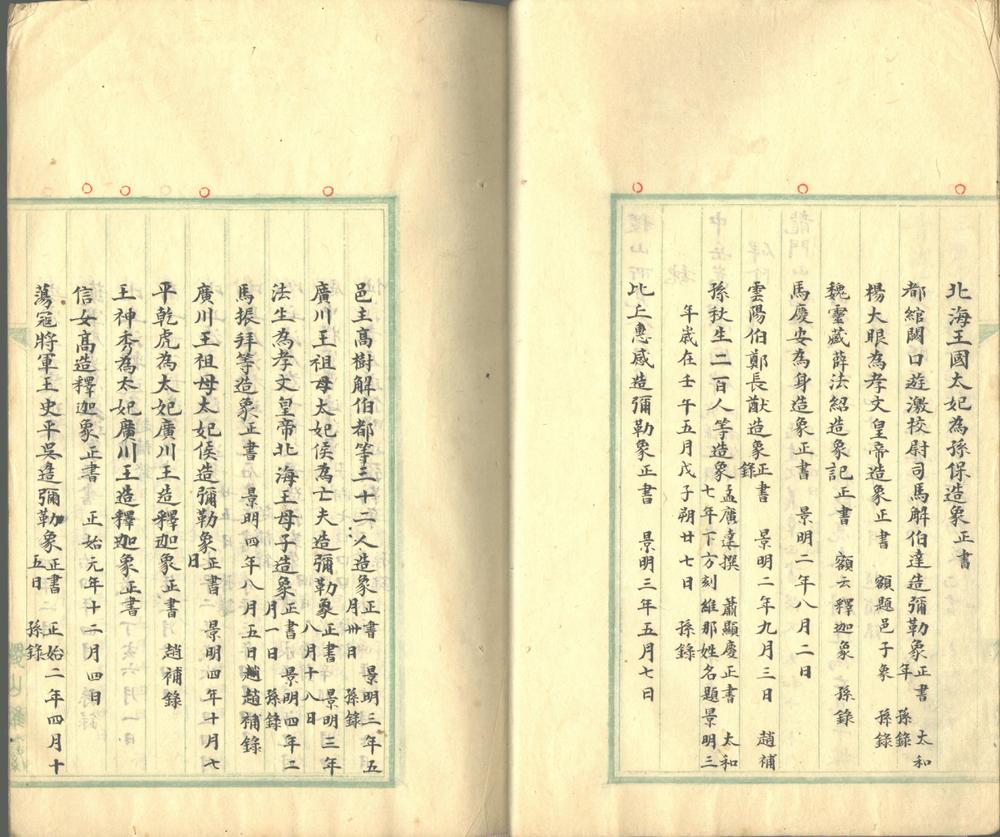 北海王國太妃為孫保造象正書
都綰闕口遊激校尉司馬解伯達造彌勒象正書 太和
年 孫錄
楊大眼為孝文皇帝造象正書 額題邑子象 孫錄
魏靈藏薛法紹造象記正書 額云釋迦象 孫錄
馬慶安為身造象正書 景明二年八月二日
雲陽伯鄭長猷造象正書 景明二年九月三日 趙補
錄
孫秋生二百人等造象孟廣達撰 蕭顯慶正書 太和
七年下方刻維那姓名題景明三
年歲在壬午五月戊子朔廿七日 孫錄
比丘惠感造彌勒象正書 景明三年五月七日
邑主高樹解伯都等三十二人造象正書 景明三年五
月卅日 孫錄
廣川王祖母太妃侯為亡夫造彌勒象正書 景明三年
八月十八日
法生為孝文皇帝北海王母子造象正書 景明四年二
月一日 孫錄
馬振拜等造象正書 景明四年八月五日 趙補錄
廣川王祖母太妃侯造彌勒象正書 景明四年十月七
日
平乾虎為太妃廣川王造釋迦象正書 趙補錄
王神秀為太妃廣川王造釋迦象正書
信女高造釋迦象正書 正始元年十二月四日
蕩寇將軍王史平吳造彌勒象正書 正始二年四月十
五日 孫錄